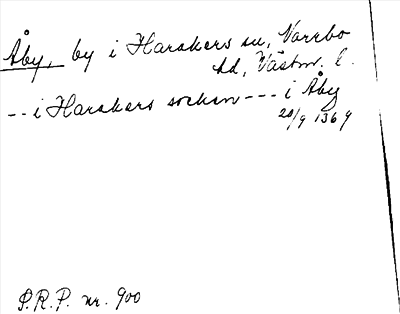 Åby, by i Harakers sn, Norrbo
hd, Västm. l.
-- i Harakers sockin --- i Åby
20/9 1369
S.R.P. nr. 900